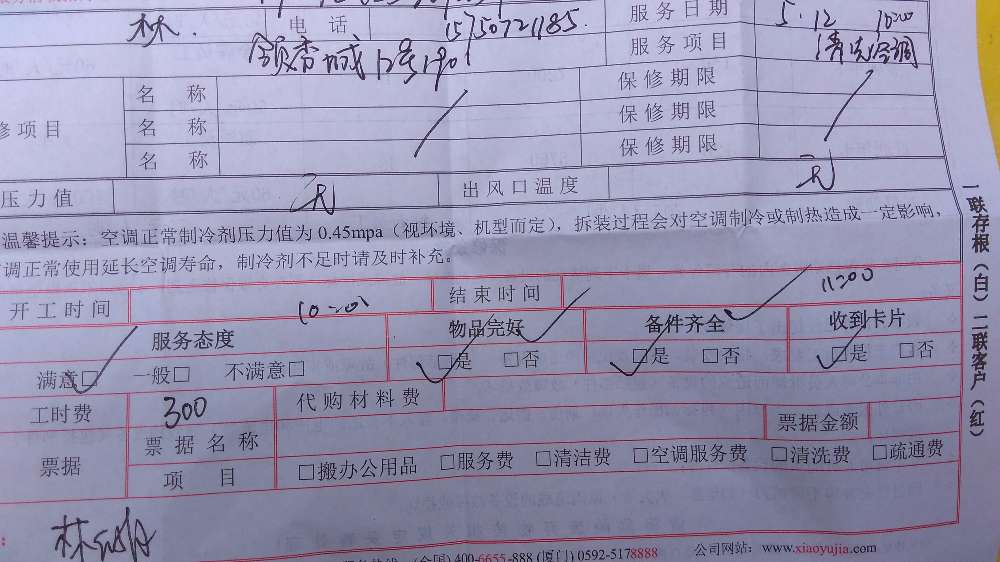 林. 电 话 15750721185. 服务日期 5.12 10:00
领秀城12号1901 服务项目 清洗空调
名 称 保修期限
修项目 名 称 保修期限
名 称 保修期限
压力值 无 出风口温度 无
温馨提示：空调正常制冷剂压力值为 0.45mpa（视环境、机型而定），拆装过程会对空调制冷或制热造成一定影响，
调正常使用延长空调寿命，制冷剂不足时请及时补充。
开工时间 10:00 结束时间 11:00
服务态度 物品完好 备件齐全 收到卡片
满意□ 一般□ 不满意□ □是 □否 □是 □否 □是 □否
工时费 300 代购材料费
票据 票据名称 票据金额
项 目 □搬办公用品 □服务费 □清洁费 □空调服务费 □清洗费 □疏通费
400-6655-888 (厦门) 0592-5178888 公司网站：www.xiaoyujia.com
一联存根（白）二联客户（红）